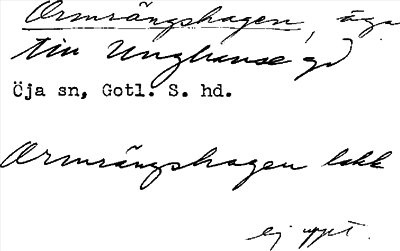 Ormrängshagen, äga
till Unghanse gd
Öja sn, Gotl. S. hd.
Ormrängshagen lokk
ej uppt.